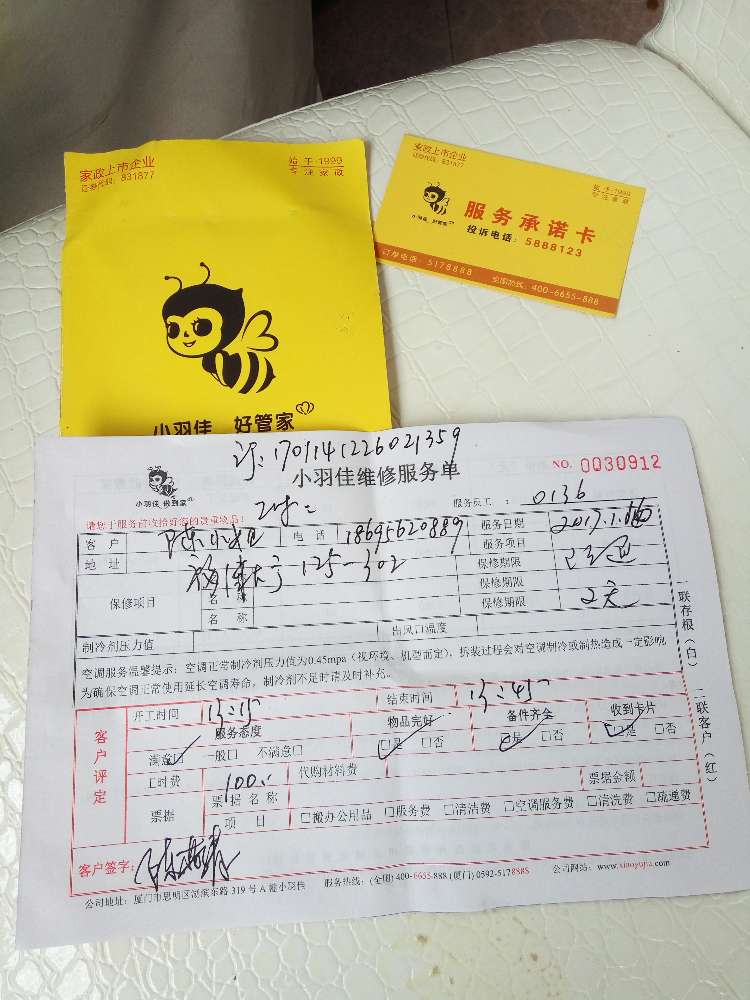 家政上市企业
证券代码：831877
始于·1999
专注家政
小羽佳 好管家
家政上市企业
证券代码：831877
始于·1999
专注家政
小羽佳 好管家
服务承诺卡
投诉电话：5888123
订单电话：5178888
全国热线：400-6655-888
订：1701141226021359
小羽佳维修服务单
NO. 0030912
小羽佳 做到家
服务员工：0136
请您于服务前收拾好您的贵重物品！
客户 陈小姐 电话 18695620889 服务日期
地址 125-302 服务项目
保修期限
保修项目 名称 保修期限
名称 保修期限 2天
制冷剂压力值 出风口温度
空调服务温馨提示：空调正常制冷剂压力值为0.45mpa（视环境、机型而定），拆装过程会对空调制冷或制热造成一定影响
为确保空调正常使用延长空调寿命，制冷剂不足时请及时补充。
一联存根（白）
二联客户（红）
客户评定
开工时间 13:15 结束时间 13:45
服务态度 物品完好 备件齐全 收到卡片
满意□ 一般□ 不满意□ □是 □否 □是 □否 □是 □否
工时费 100 代购材料费
票据 票据名称 票据金额
项目 □搬办公用品 □服务费 □清洁费 □空调服务费 □清洗费 □疏通费
客户签字：
公司地址：厦门市思明区湖滨东路319号A幢小羽佳 服务热线：(全国) 400-6655-888 (厦门) 0592-5178888 公司网站：www.xiaoyujia.com